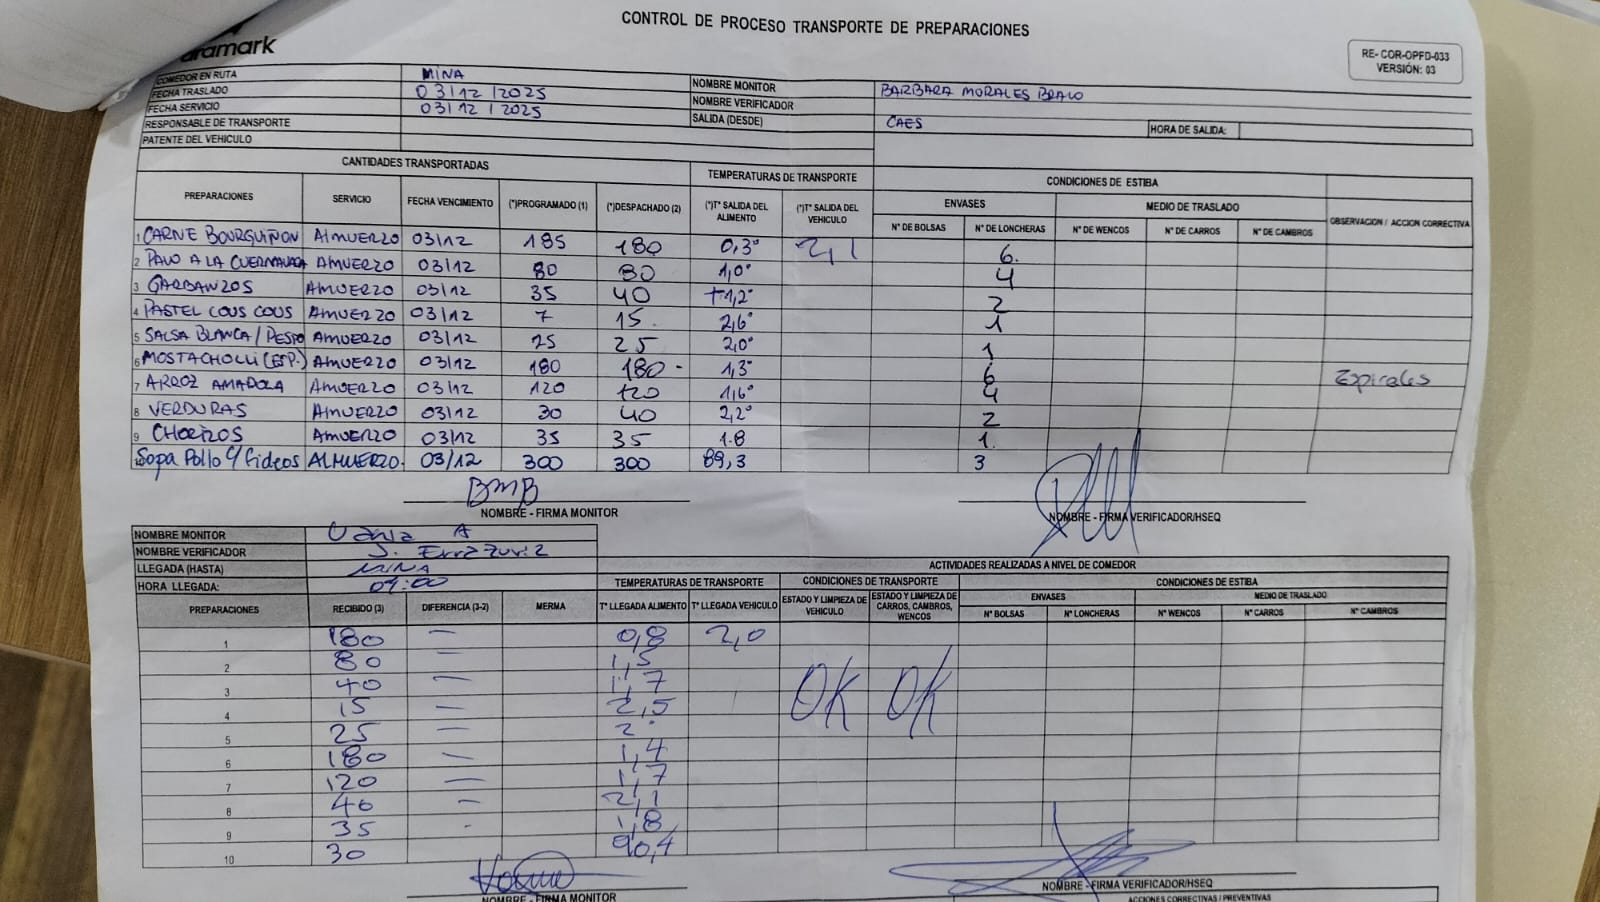 CONTROL DE PROCESO TRANSPORTE DE PREPARACIONES
aramark
RE- COR-OPFD-033
VERSIÓN: 03
COMEDOR EN RUTA MINA NOMBRE MONITOR BARBARA MORALES BRAVO
FECHA TRASLADO 03/12/2025 NOMBRE VERIFICADOR
FECHA SERVICIO 03/12/2025 SALIDA (DESDE) CAES HORA DE SALIDA:
RESPONSABLE DE TRANSPORTE
PATENTE DEL VEHICULO
CANTIDADES TRANSPORTADAS TEMPERATURAS DE TRANSPORTE CONDICIONES DE ESTIBA
ENVASES MEDIO DE TRASLADO
PREPARACIONES SERVICIO FECHA VENCIMIENTO (*)PROGRAMADO (1) (*)DESPACHADO (2) (*)T° SALIDA DEL ALIMENTO (*)T° SALIDA DEL VEHICULO N° DE BOLSAS N° DE LONCHERAS N° DE WENCOS N° DE CARROS N° DE CAMBROS OBSERVACION / ACCION CORRECTIVA
1 CARNE BOURGUIÑON ALMUERZO 03/12 185 180 0,3° 2,1 6.
2 PAVO A LA CUERNAVACA AMUERZO 03/12 80 80 1,0° 4
3 GARBANZOS AMUERZO 03/12 35 40 +1,2° 2
4 PASTEL COUS COUS AMUERZO 03/12 7 15. 2,6° 1
5 SALSA BLANCA / PESTO AMUERZO 03/12 25 25 2,0° 1
6 MOSTACHOLLI (ESP.) AMUERZO 03/12 180 180 - 1,3° 6 Espirales
7 ARROZ AMADOLA AMUERZO 03/12 120 120 1,6° 4
8 VERDURAS AMUERZO 03/12 30 40 2,2° 2
9 CHORIZOS AMUERZO 03/12 35 35 1.8 1.
10 Sopa Pollo c/ fideos ALMUERZO. 03/12 300 300 89,3 3
BMB
NOMBRE - FIRMA MONITOR NOMBRE - FIRMA VERIFICADOR/HSEQ
NOMBRE MONITOR Vania A
NOMBRE VERIFICADOR J. Errazuriz
LLEGADA (HASTA) MINA ACTIVIDADES REALIZADAS A NIVEL DE COMEDOR
HORA LLEGADA: TEMPERATURAS DE TRANSPORTE CONDICIONES DE TRANSPORTE CONDICIONES DE ESTIBA
ENVASES MEDIO DE TRASLADO
PREPARACIONES RECIBIDO (3) DIFERENCIA (3-2) MERMA T° LLEGADA ALIMENTO T° LLEGADA VEHICULO ESTADO Y LIMPIEZA DE VEHICULO ESTADO Y LIMPIEZA DE CARROS, CAMBROS, WENCOS N° BOLSAS N° LONCHERAS N° WENCOS N° CARROS N° CAMBROS
1 180 — 0,8 2,0
2 80 — 1,5
3 40 — 1,7 OK OK
4 15 — 2,5
5 25 — 2°
6 180 — 1,4
7 120 — 1,7
8 40 — 2,1
9 35 - 1,8
10 30 90,4
NOMBRE - FIRMA MONITOR NOMBRE - FIRMA VERIFICADOR/HSEQ
ACCIONES CORRECTIVAS / PREVENTIVAS